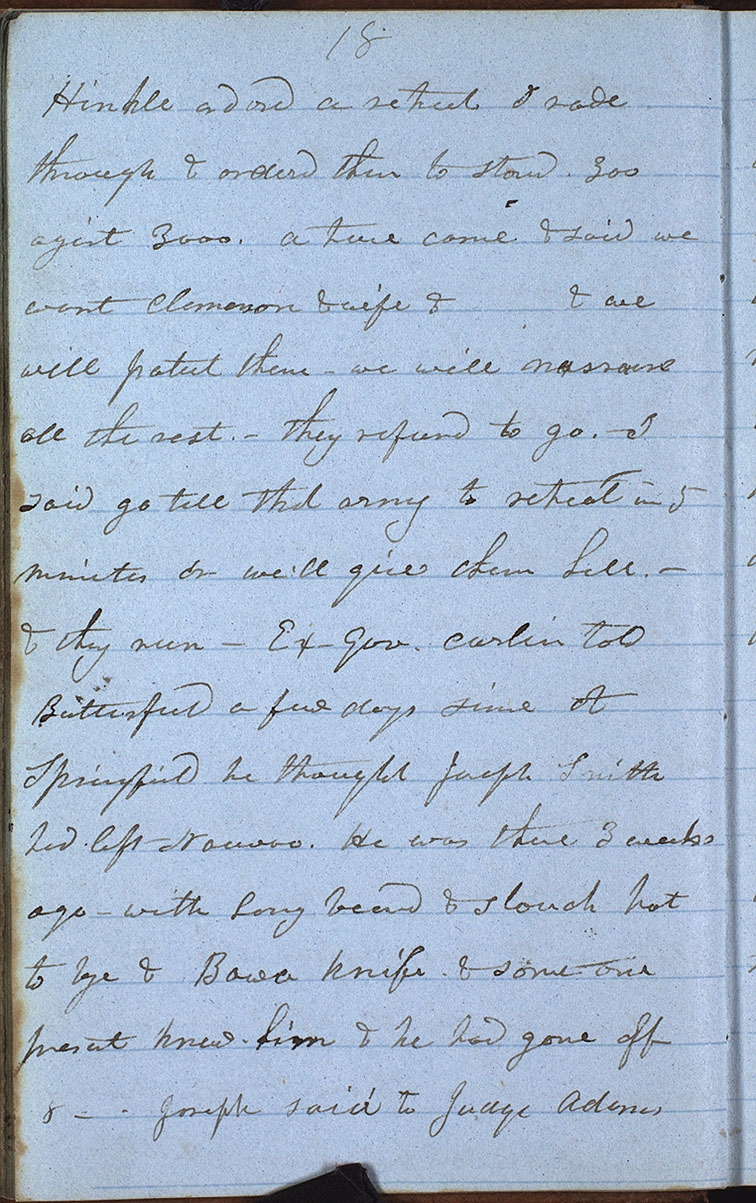 18
Hinkle ordord a retreat I rode
through & orderd them to stand. 300
agist 3000. a truce came & said we
want Clemenson & wife & & we
will protect them - we will massacre
all the rest. - they refused to go. - I
said go tell that army to retreat in 5
minutes or we'll give them hell. -
& they run - Ex-Gov. Carlin told
Butterfield a few days since at
Springfield he thought Joseph Smith
had left Nauvoo. He was there 3 weeks
ago - with long beard & slouch hat
to & Bowa knife. & some one
present knew him & he had gone off
8 - - Joseph said to Judge Adams